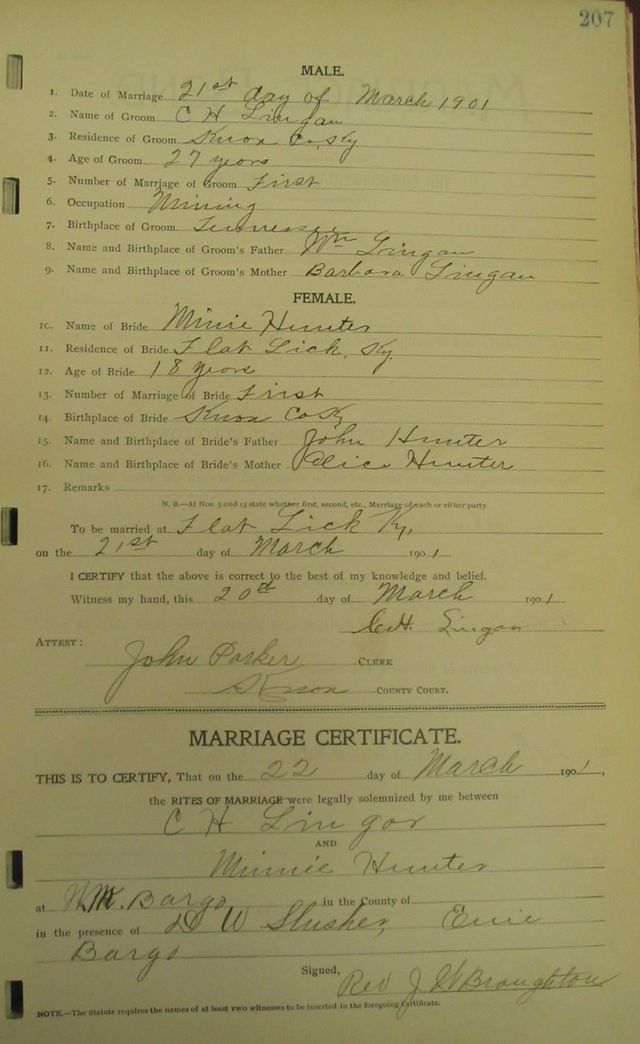 207
MALE.
1. Date of Marriage 21st day of March 1901
2. Name of Groom C H Lingan
3. Residence of Groom Knox Co, Ky
4. Age of Groom 27 years
5. Number of Marriage of Groom First
6. Occupation Mining
7. Birthplace of Groom Tennessee
8. Name and Birthplace of Groom's Father Wm Lingan
9. Name and Birthplace of Groom's Mother Barbara Lingan
FEMALE.
10. Name of Bride Minie Hunter
11. Residence of Bride Flat Lick, Ky.
12. Age of Bride 18 years
13. Number of Marriage of Bride First
14. Birthplace of Bride Knox Co Ky
15. Name and Birthplace of Bride's Father John Hunter
16. Name and Birthplace of Bride's Mother Alice Hunter
17. Remarks
N. B.—At Nos. 5 and 13 state whether first, second, etc., Marriage of each or either party.
To be married at Flat Lick Ky,
on the 21st day of March 1901
I CERTIFY that the above is correct to the best of my knowledge and belief.
Witness my hand, this 20th day of March 1901
C.H. Lingan
ATTEST:
John Parker CLERK
Knox COUNTY COURT.
MARRIAGE CERTIFICATE.
THIS IS TO CERTIFY, That on the 22 day of March 1901,
the RITES OF MARRIAGE were legally solemnized by me between
C H Lingar
AND
Minnie Hunter
at Wm. Bargo in the County of
in the presence of D W Slusher, 
Bargo
Signed, Rev J W Broughton
NOTE.—The Statute requires the names of at least two witnesses to be inserted in the foregoing Certificate.